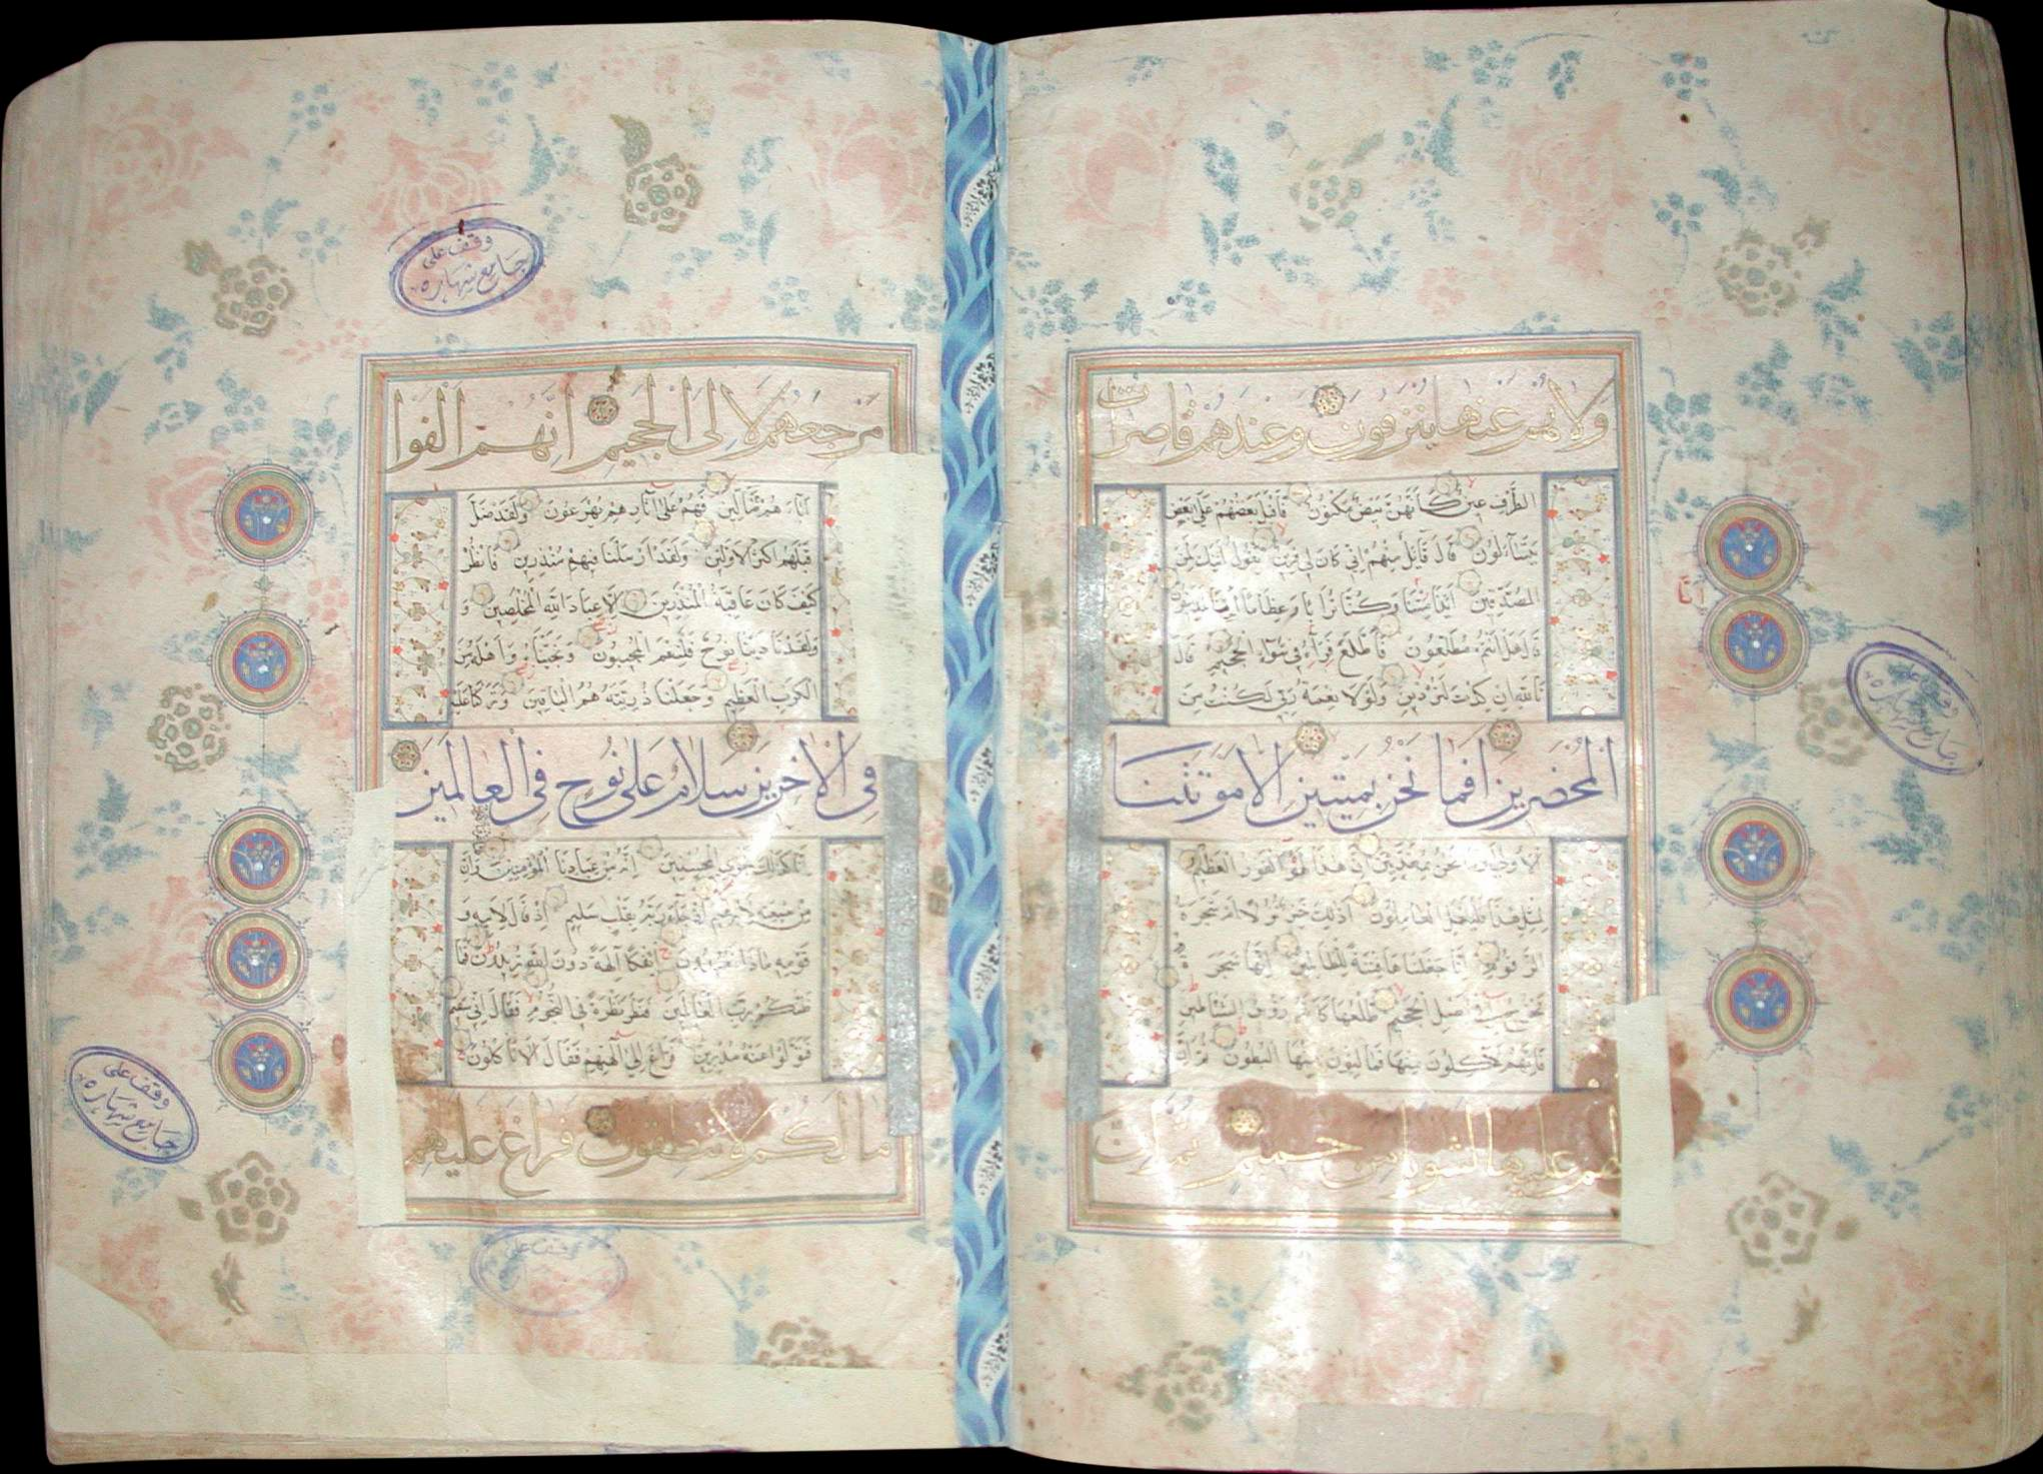 ولا هم عنها ينزفون وعندهم قاصرات
الطرف عين كأنهن بيض مكنون فأقبل بعضهم على بعض
يتساءلون قال قائل منهم إني كان لي قرين يقول أئنك لمن
المصدقين أئذا متنا وكنا ترابا وعظاما أئنا لمدينون
قال هل أنتم مطلعون فاطلع فرآه في سواء الجحيم قال
تالله إن كدت لتردين ولولا نعمة ربي لكنت من
المحضرين أفما نحن بميتين إلا موتتنا
الأولى وما نحن بمعذبين إن هذا لهو الفوز العظيم
لمثل هذا فليعمل العاملون أذلك خير نزلا أم شجرة
الزقوم إنا جعلناها فتنة للظالمين إنها شجرة
تخرج في أصل الجحيم طلعها كأنه رؤوس الشياطين
فإنهم لآكلون منها فمالئون منها البطون ثم إن
لهم عليها لشوبا من حميم ثم إن
وقف على
جامع شهاره
مرجعهم لإلى الجحيم إنهم ألفوا
آباءهم ضالين فهم على آثارهم يهرعون ولقد ضل
قبلهم أكثر الأولين ولقد أرسلنا فيهم منذرين فانظر
كيف كان عاقبة المنذرين إلا عباد الله المخلصين و
ولقد نادينا نوح فلنعم المجيبون ونجيناه وأهله من
الكرب العظيم وجعلنا ذريته هم الباقين وتركنا عليه
في الآخرين سلام على نوح في العالمين
إنا كذلك نجزي المحسنين إنه من عبادنا المؤمنين وإن
من شيعته لإبراهيم إذ جاء ربه بقلب سليم إذ قال لأبيه و
قومه ماذا تعبدون أئفكا آلهة دون الله تريدون فما
ظنكم برب العالمين فنظر نظرة في النجوم فقال إني سقيم
فتولوا عنه مدبرين فراغ إلى آلهتهم فقال ألا تأكلون
ما لكم لا تنطقون فراغ عليهم
وقف على
جامع شهاره
وقف على
جامع شهاره
وقف على